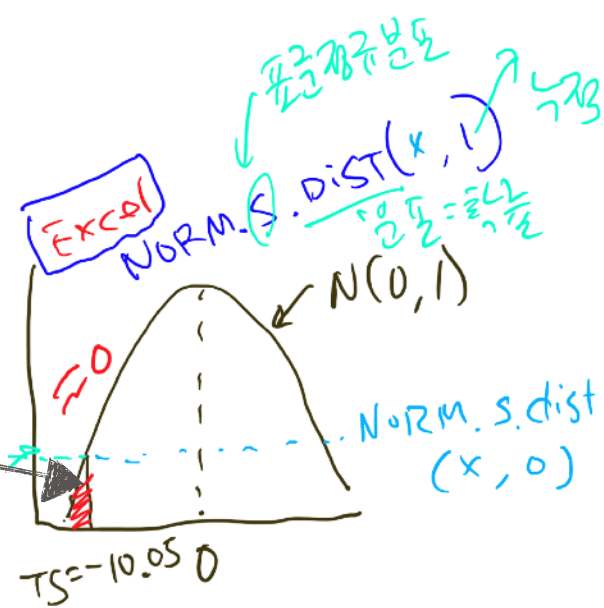 표준정규분포
누적
Excel
NORM.S.DIST(x, 1)
분포=확률
N(0,1)
≈0
NORM.S.dist
(x, 0)
TS=-10.05 0